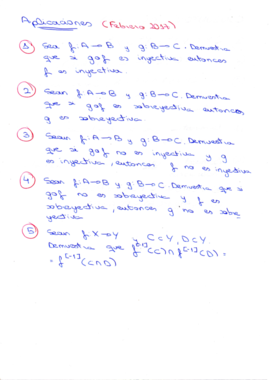 Aplicaciones (Febrero 2017)
1 Sea f: A→B y g: B→C. Demuestra
que si g∘f es inyectiva entonces
f es inyectiva.
2 Sean f: A→B y g: B→C. Demuestra
que si g∘f es sobreyectiva entonces
g es sobreyectiva.
3 Sean f: A→B y g: B→C. Demuestra
que si g∘f no es inyectiva y g
es inyectiva, entonces f no es inyectiva
4 Sean f: A→B y g: B→C Demuestra que si
g∘f no es sobreyectiva y f es
sobreyectiva, entonces g no es sobre
yectiva
5 Sean f: X→Y y C⊂Y, D⊂Y
Demuestra que f[-1](C)∩f[-1](D) =
= f[-1](C∩D)